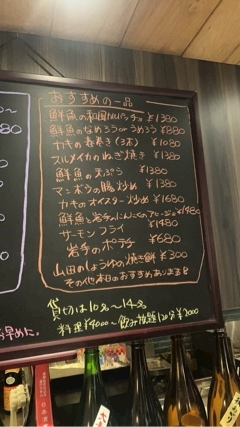 おすすめの一品
鮮魚の和風カルパッチョ ¥1380
鮮魚のなめろうorうめろう ¥880
カキの春巻き(3本) ¥1080
スルメイカのねぎ焼き ¥1380
鮮魚の天ぷら ¥1380
マンボウの腸炒め ¥1380
カキのオイスター炒め ¥1680
鮮魚と岩手のにんにくのアヒージョ ¥1480
サーモンフライ ¥1480
岩手のポテチ ¥680
山田のしょうゆの焼き餅 ¥300
その他本日のおすすめあります
貸切は10名〜14名
料理¥4000〜飲み放題120分¥2000